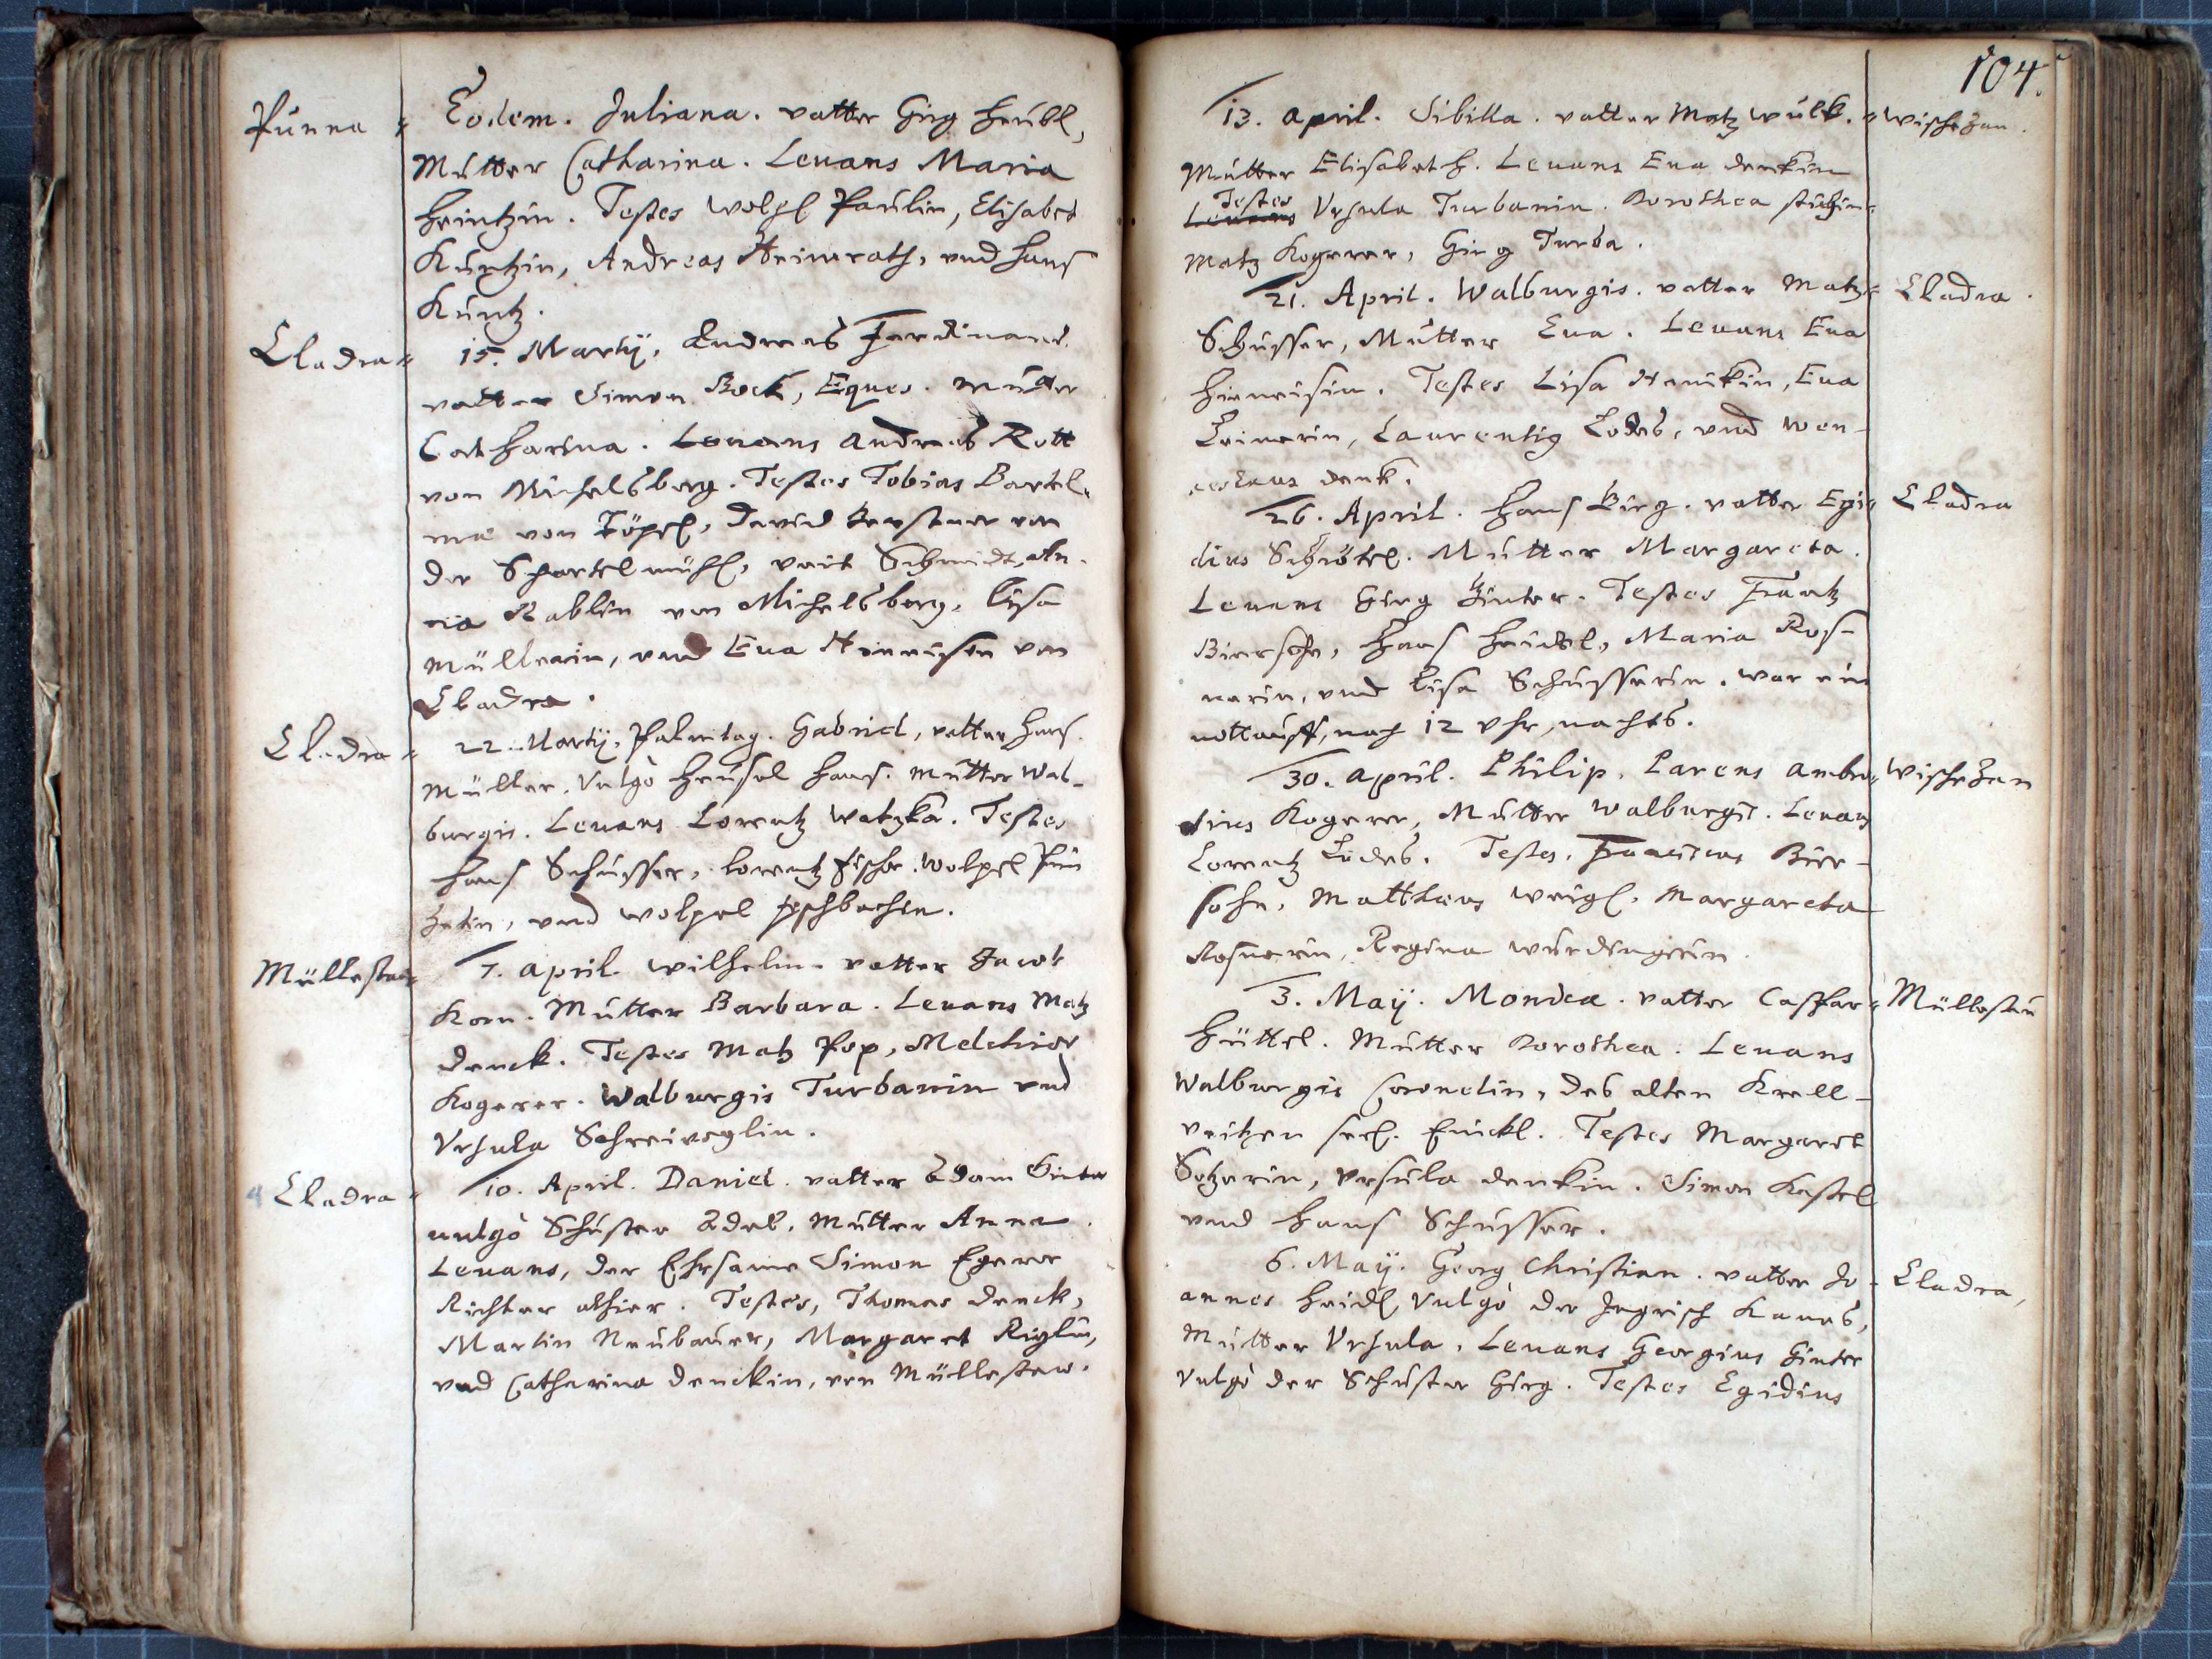 Punna Eodem. Juliana. vatter Girg Heubl,
Mutter Catharina. Leuans Maria
Heintzin. Testes Wolfl Paulin, Elisabet
Kuntzin, Andreas Heimrath, vnd Hans
Kuntz.
Cladra 15. Martij. Andreas Ferdinand.
vatter Simon Bock, Eques. Mutter
Catharina. Leuans Andreas Rott
von Michelsberg. Testes Tobias Bartel-
von David von
der veit Schmidt,
Rablin von Michelsberg, Lisa
Müllerin, vnd Eua von
Cladra.
Cladra 22. Martij. Palmtag. Gabriel, vatter Hans
Müller. Vulgò Heusel Hans. Mutter Wal-
burgis. Leuans Lorentz Watzka. Testes
Hans Schusser, Lorentz Fischer. Wolpel
vnd Wolpel
Müllestau 7. April. Wilhelm. vatter Jacob
Korn. Mutter Barbara. Leuans Matz
Denck. Testes Matz Pop, Melchior
Kogerer. Walburgis Turbanin vnd
Vrsula Schreiveglin.
Cladra 10. April. Daniel. vatter Adam Ginter
uulgò Schuster Adel. Mutter Anna
Leuans, der Ehrsame Simon Egerer
Richter alhier. Testes, Thomas Denck,
Martin Neubauer, Margaret Riglin,
vnd Catharina Denckin, von Müllestau.
104.
13. April. Sibilla. vatter Matz Wulk. Wischezan.
Mutter Elisabeth. Leuans Eua Denkin
Testes
Leuans Vrsula Turbanin. Dorothea
Matz Kogerer, Girg Turba.
21. April. Walburgis. vatter Matz Cladra.
Schusser, Mutter Eua. Leuans Eua
Testes Lisa Eua
Laurentig Lodes, vnd Wen-
ceslaus Denk.
26. April. Hans Girg. vatter Egi- Cladra
dius Schrötel. Mutter Margareta.
Leuans Girg Ginter. Testes Frantz
Biersohn, Hans Heidel, Maria Ros-
nerin, vnd Lisa Schusserin. war ein
nottauff, nach 12 Vhr, nachts.
30. April. Philip. Parens Ambro- Wischezan
sius Kogerer, Mutter Walburgis. Leuans
Lorentz Lodes. Testes. Franciscus Bier-
sohn, Matthæus Weigl, Margareta
Rosnerin, Regina Würdingerin.
3. Maij. Monica. vatter Caspar Müllestau
Hüttel. Mutter Dorothea. Leuans
Walburgis Coronelin, des alten Krell-
veitzen seel. Enickl. Testes Margaret
Vrsula Denkin. Simon Kastel
vnd Hans Schusser.
6. Maij. Georg Christian. vatter Jo- Cladra,
annes Heidl, Vulgò der
Mutter Vrsula. Leuans Georgius Ginter
Vulgò der Schuster Girg. Testes Egidius